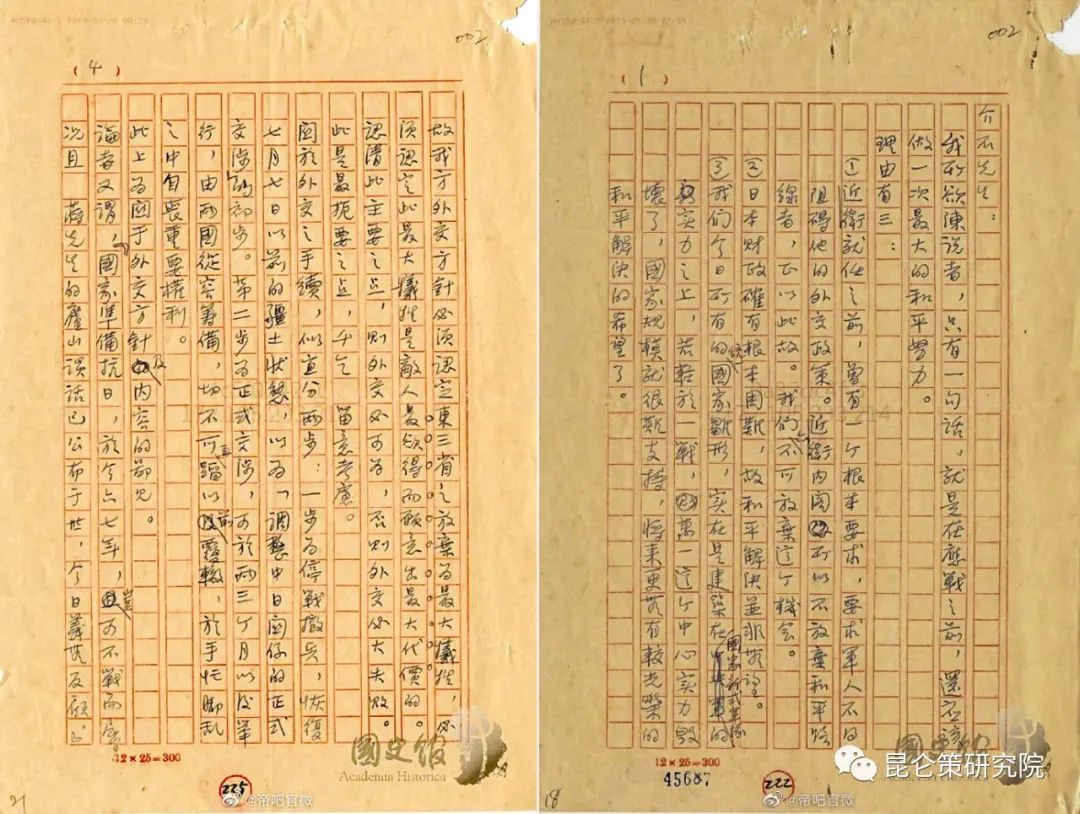 002
(1)
介石先生：
我所欲陳說者，只有一句話，就是在應戰之前，還应該
做一次最大的和平努力。
理由有三：
①近衛就任之前，曾有一个根本要求，要求軍人不得
阻碍他的外交政策。近衛內閣所以不放棄和平路
線者，正以此故。我們不可放棄这个機会。
②日本財政確有根本困難，故和平解決並非無望。
③我們今日所有的統一國家雛形，实在是建築在國家新式軍隊的
实力之上，若輕於一戰，萬一這个中心实力毀
壞了，國家規模就很難支持，將來更無有較光榮的
和平解決的希望了。
12×25=300
45687
222
18
國史館
昆仑策研究院
@帝吧官微
002
(4)
故我方外交方針必須認定東三省之放棄為最大犧牲，必
須認定此最大犧牲是敵人最欲得而願意出最大代價的。
認清此主要之点，則外交必可為，否則外交必大失敗。
此是最扼要之点，千乞　留意考慮。
關於外交之手續，似宜分兩步：一步為停戰撤兵，恢復
七月七日以前的疆土狀態，以為「調整中日関係的正式
交涉」的初步。第二步為正式交涉，可於兩三个月以後举
行，由兩國從容籌備，切不可再蹈以前覆轍，於手忙脚亂
之中自喪重要權利。
此上为関于外交方針及內容的鄙見。
論者又謂，「國家準備抗日，於今六七年，豈可不戰而屈。
況且　蔣先生的廬山談話已公布于世，今日義無反顧。」
12×25=300
225
21
國史館
Academia Historica
@帝吧官微